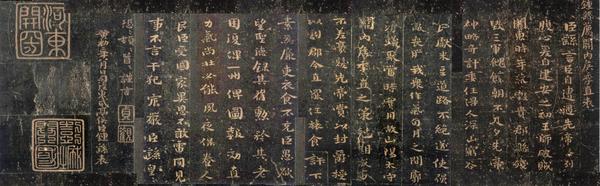 鍾繇薦關內侯季直表
臣繇言臣自遭遇先帝忝列
腹心爰自建安之初王師破賊
關東時年荒穀貴郡縣殘
毀三軍餽饟朝不及夕先帝
神略奇計委任得人深山窮谷
民獻米豆道路不絕遂使強
敵喪膽我眾作氣旬月之間廓
清蟻聚當時實用故山陽太守
關內侯季直之策剋期成事
不差豪髮先帝賞以封爵授
以劇郡今直罷任旅食許下
素為廉吏衣食不充臣愚欲
望聖德錄其舊勳矜其老
困復俾一州俾圖報效直
力氣尚壯必能夙夜保養人
民臣受國家異恩不敢雷同見
事不言干犯宸嚴臣繇皇恐
頓首謹言
貞觀
黃初二年八月日司徒東武亭侯臣鍾繇表
河東